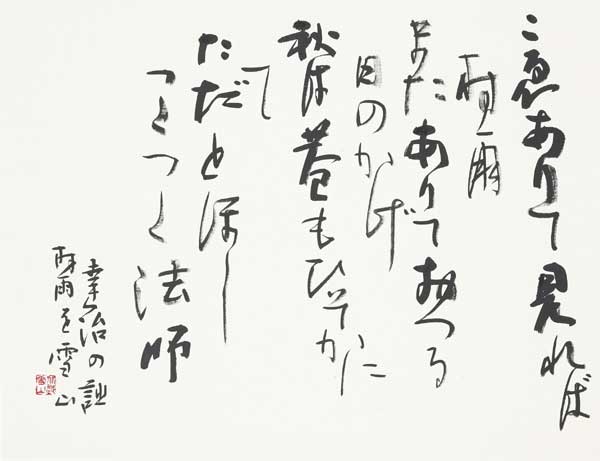 ありて見れば
時雨
またありておつる
日のかげ
秋は苔もひそかに
て
ただとほし
つくつく法師
治の詩
時雨を雪山